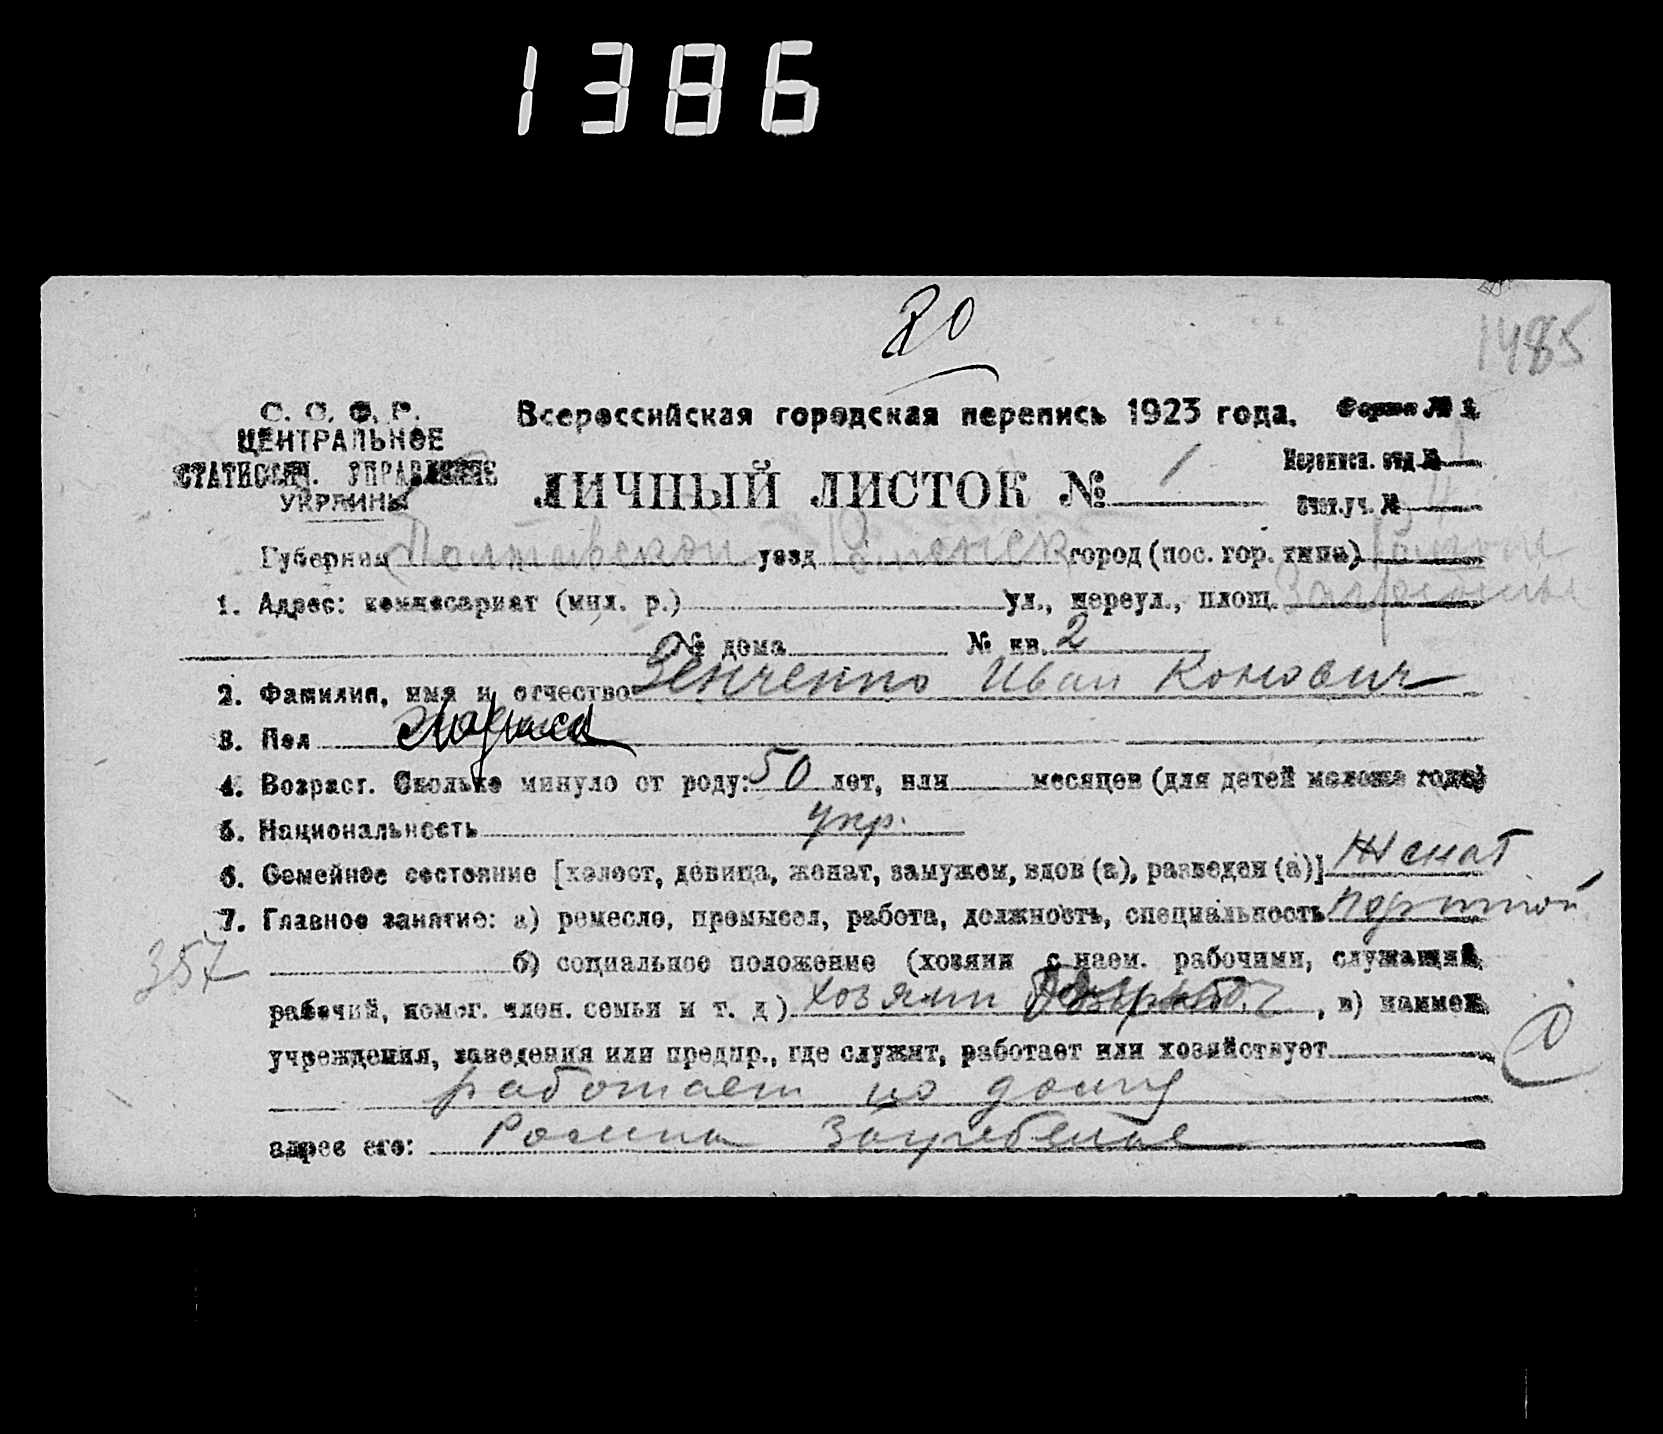 1386
20
1485
С. С. С. Р.
ЦЕНТРАЛЬНОЕ
СТАТИСТИЧ. УПРАВЛЕНИЕ
УКРАИНЫ
Всероссийская городская перепись 1923 года.
Форма № 1.
ЛИЧНЫЙ ЛИСТОК № 1
Переписн. отд. №
Счет. уч. №
Губерния Полтавской уезд Роменск город (пос. гор. типа) Ромны
1. Адрес: комиссариат (мил. р.) ул., переул., площ.
№ дома № кв. 2
2. Фамилия, имя и отчество Зенченко Иван Кононович
3. Пол
4. Возраст. Сколько минуло от роду: 50 лет, или месяцев (для детей моложе года)
5. Национальность укр.
6. Семейное состояние [холост, девица, женат, замужем, вдов (а), разведен (а)] Женат
7. Главное занятие: а) ремесло, промысел, работа, должность, специальность портной
357
б) социальное положение (хозяин с наем. рабочими, служащий,
рабочий, помог. член. семьи и т. д) хозяин , в) наимен.
учреждения, заведения или предпр., где служит, работает или хозяйствует
работает на дому
адрес его: Ромны Загребелье